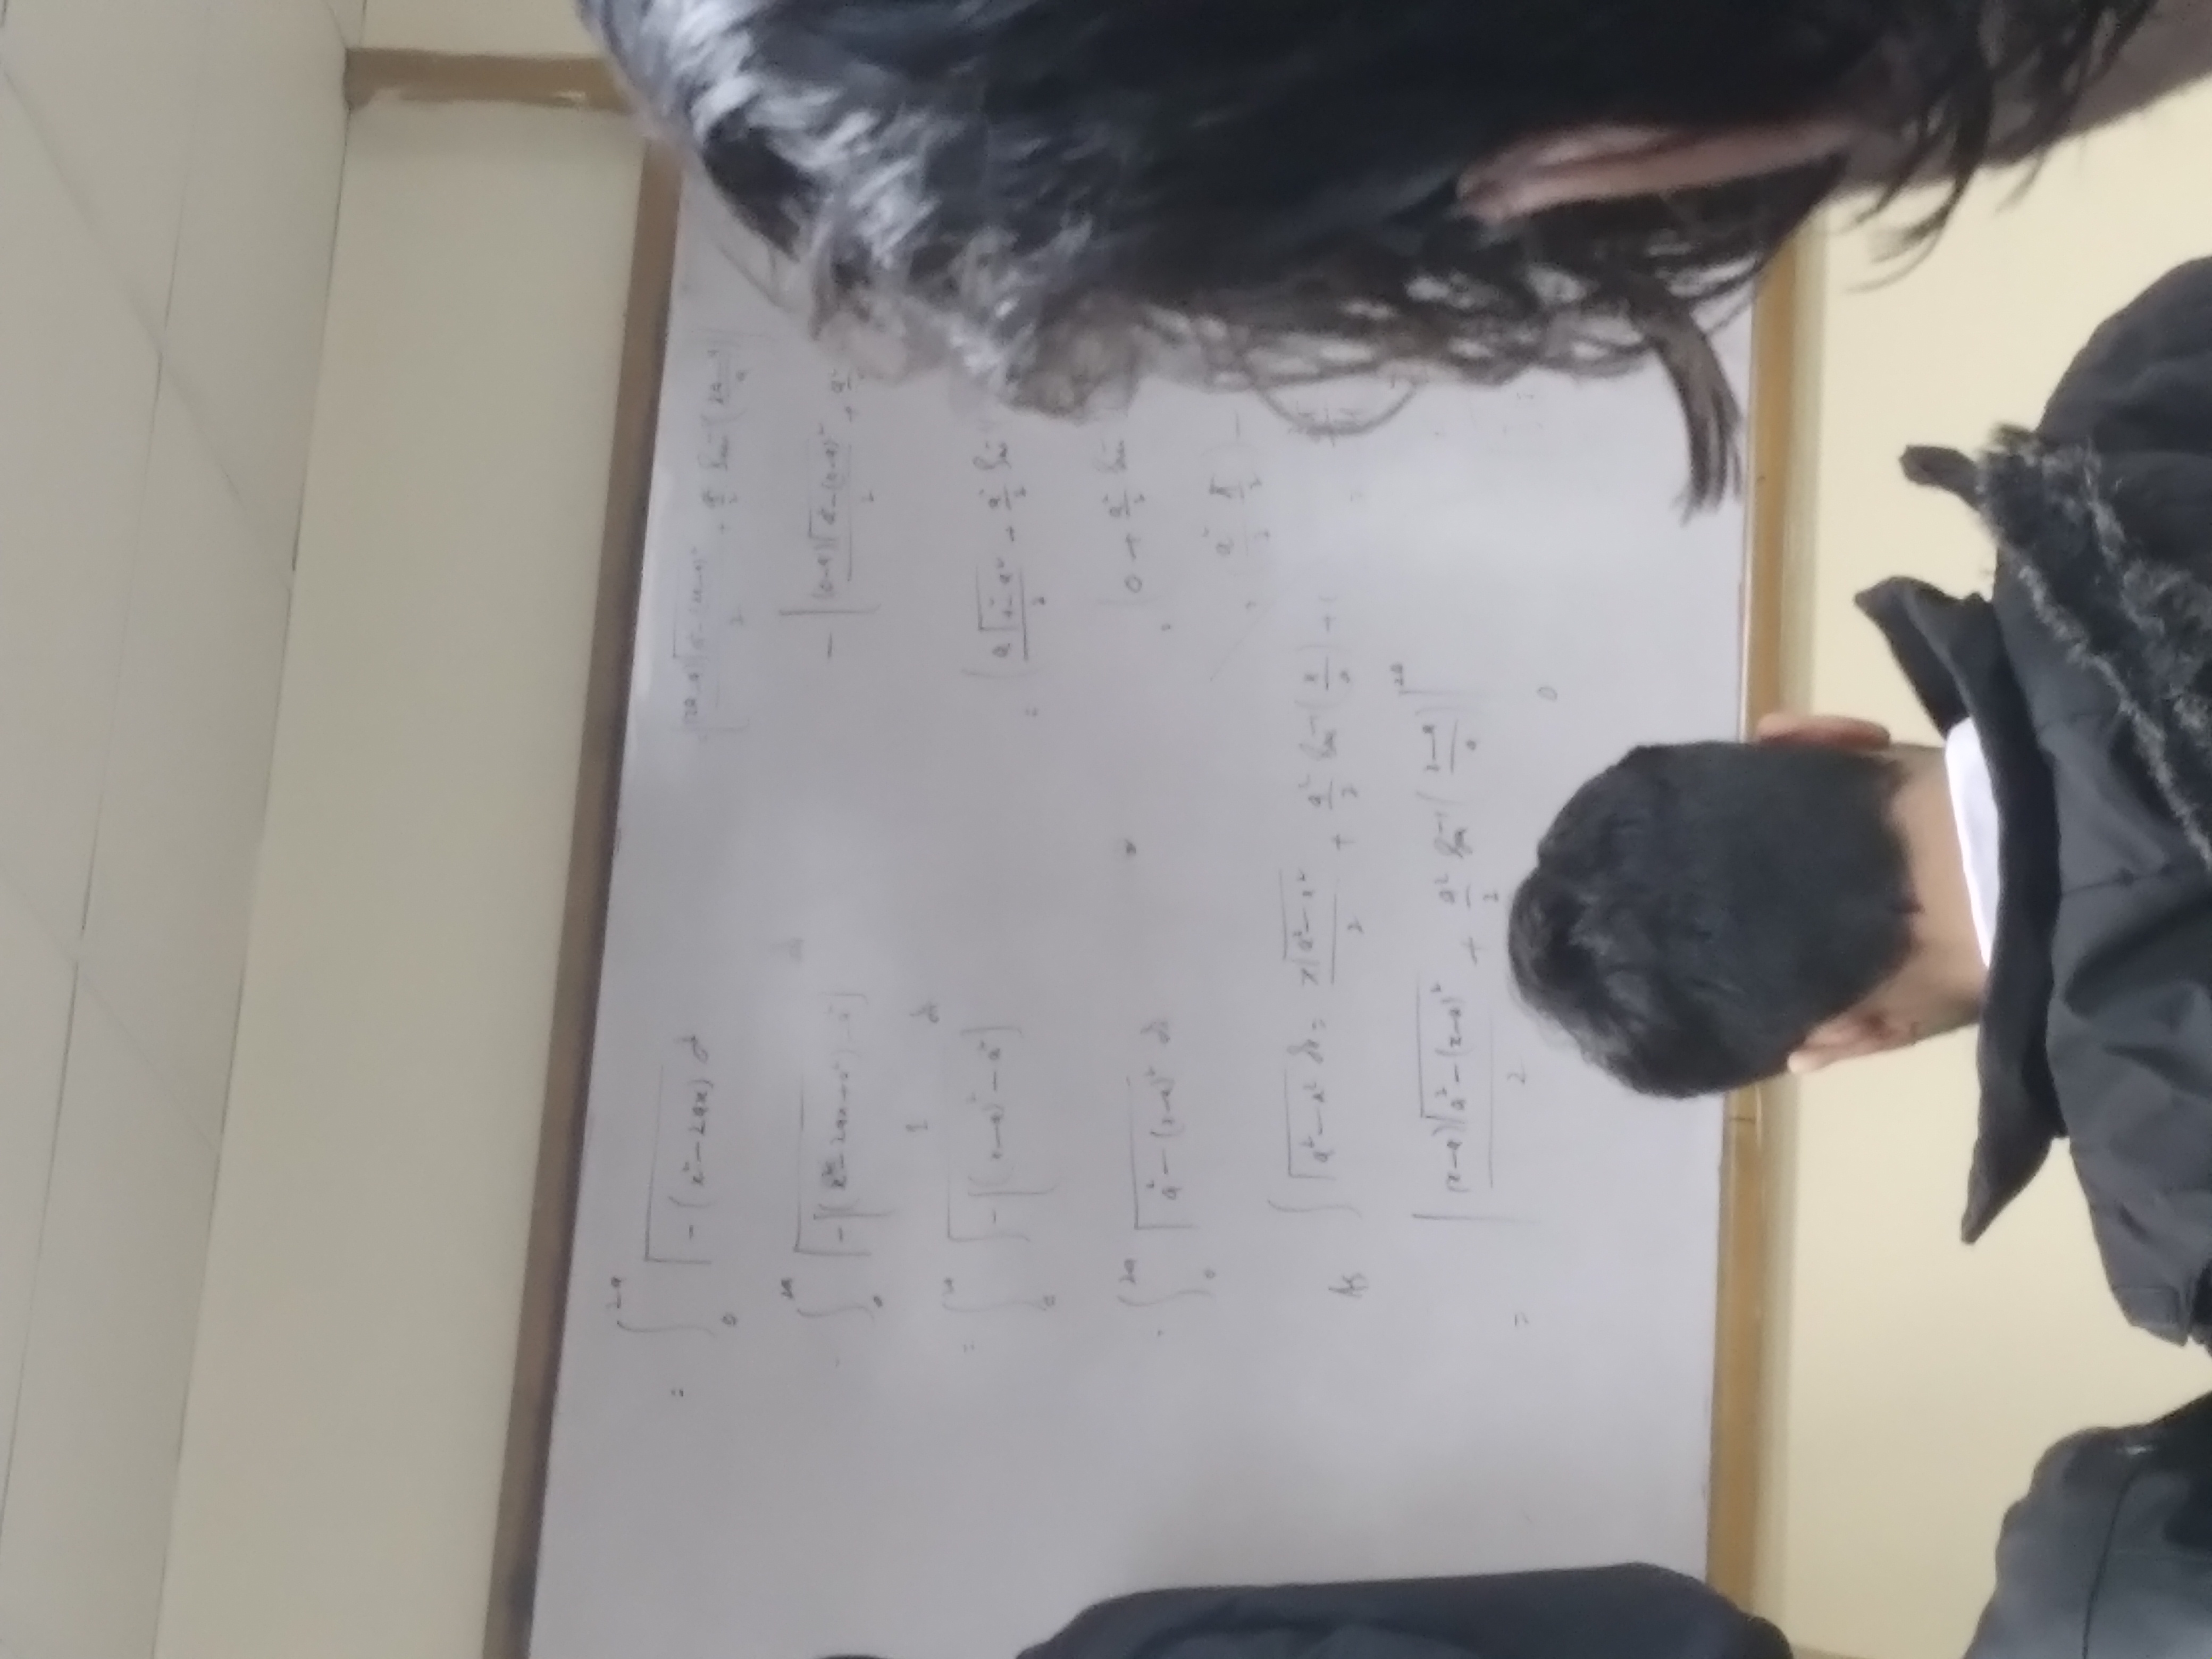 = ∫₀^{2a} √(-(x² - 2ax)) d
∫₀^{2a} √(-[(x² - 2ax + a²) - a²]) dx
1
= ∫₀^{2a} √(-[(x-a)² - a²]) dx
∫₀^{2a} √(a² - (x-a)²) dx
As ∫ √(a² - x²) dx = x√(a² - x²)/2 + a²/2 Sin⁻¹(x/a) +
= | (x-a)√(a² - (x-a)²)/2 + a²/2 Sin⁻¹((x-a)/a) |₀^{2a}
(2a-a)√(a² - (2a-a)²)/2 + a²/2 Sin⁻¹((2a-a)/a)
- [ (0-a)√(a² - (0-a)²)/2 + a²
= ( a√(a² - a²)/2 + a²/2 Sin⁻¹
= 0 + a²/2 Sin⁻
= (a²/2 π/2) -
=